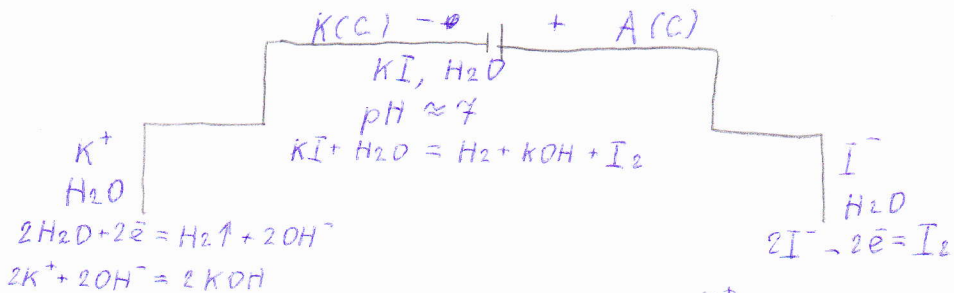 K(C) - + A(C)
KI, H2O
pH ≈ 7
KI + H2O = H2 + KOH + I2
K⁺
H2O
2H2O + 2ē = H2↑ + 2OH⁻
2K⁺ + 2OH⁻ = 2KOH
I⁻
H2O
2I⁻ - 2ē = I2